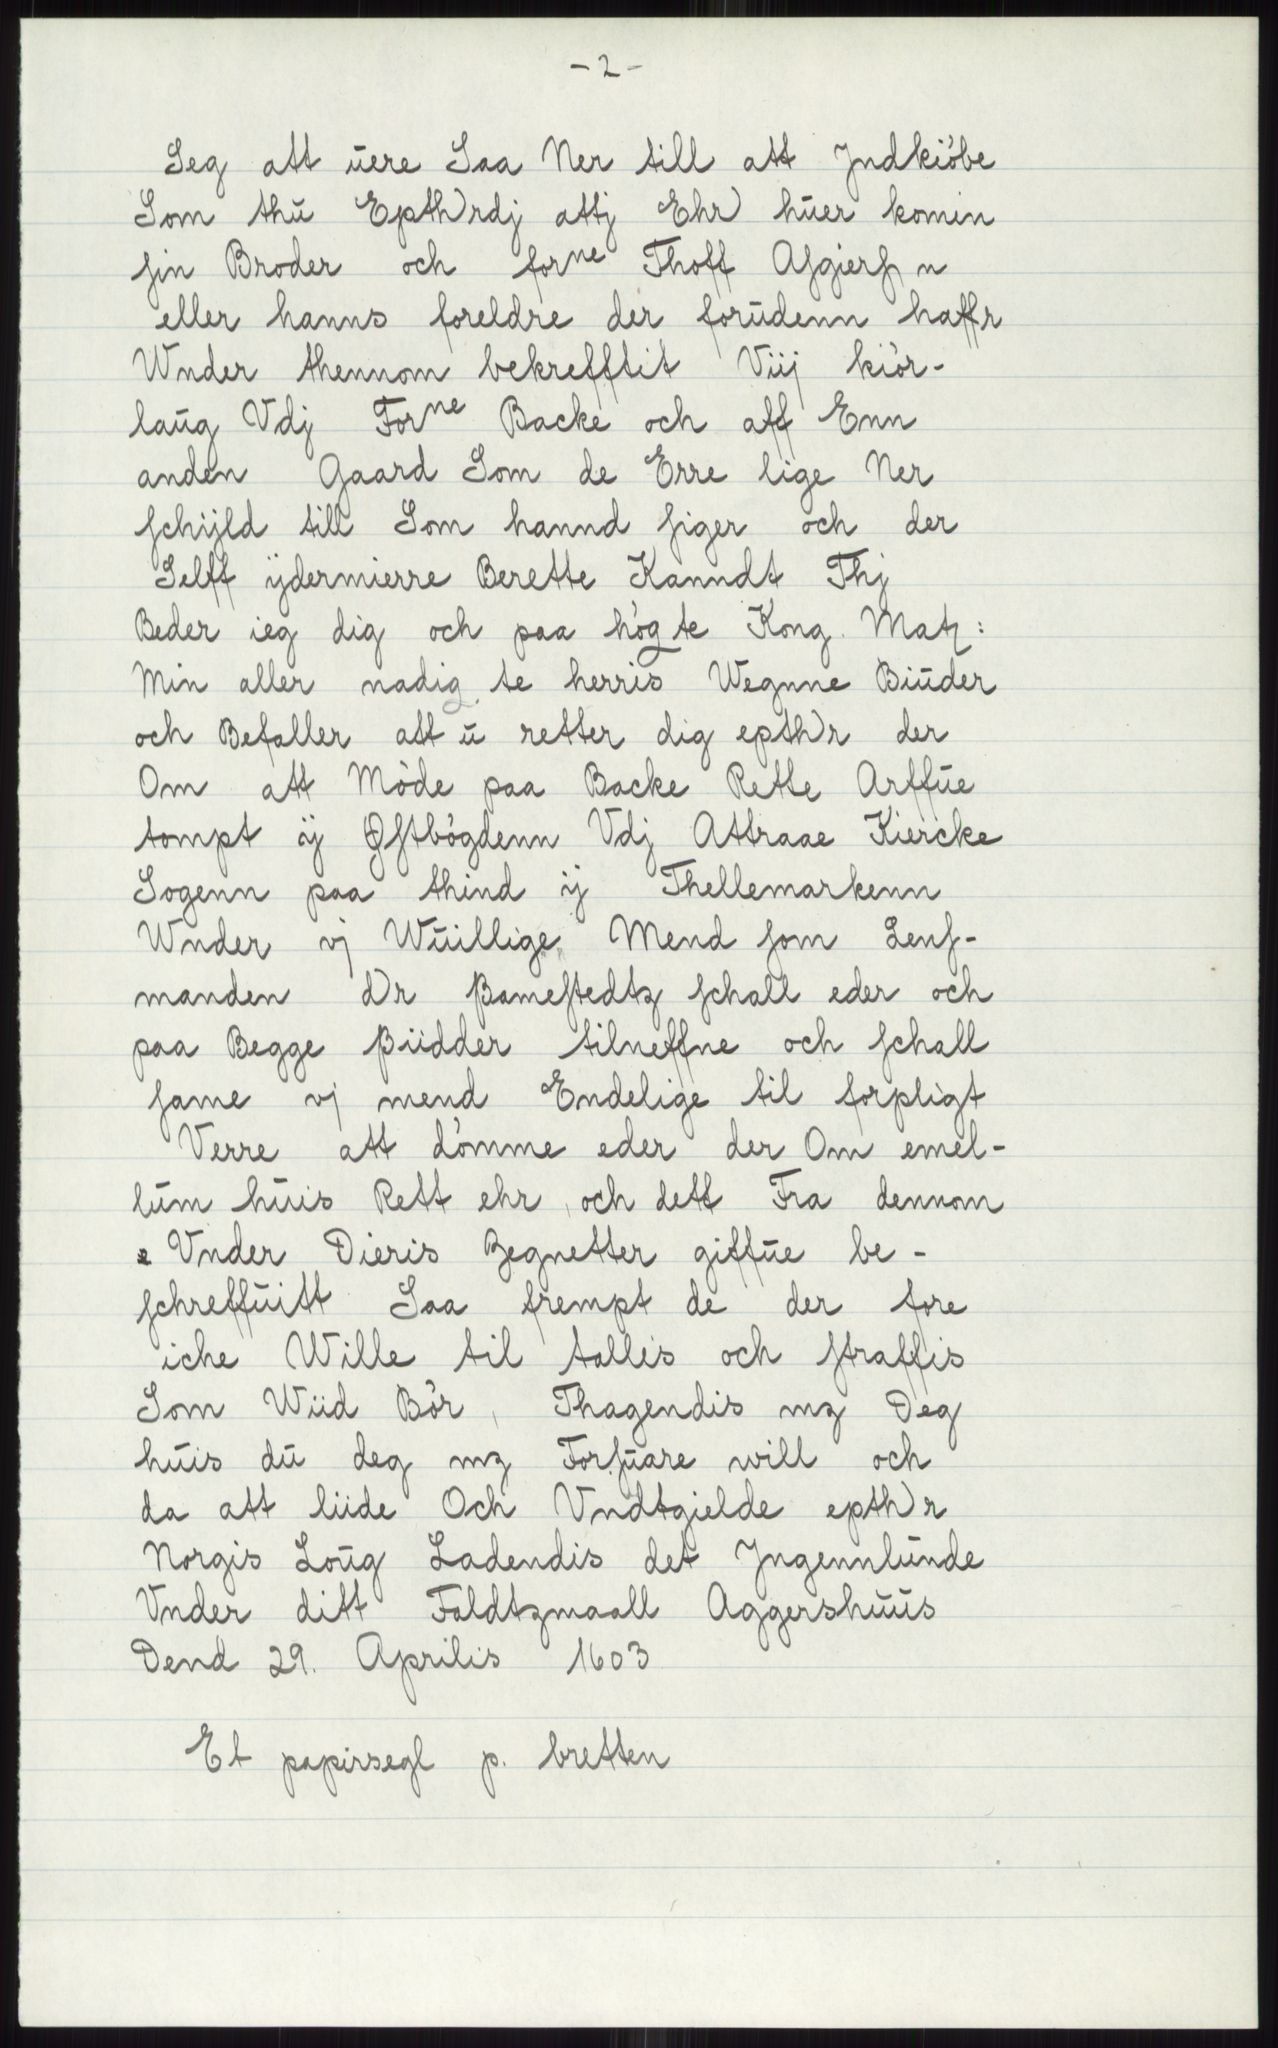 - 2 -
Seg att ūere Saa Ner till att Jndkiöbe
Som thū Epthrdj attj Ehr hūer komin
sin Broder och forne Thoff Asgiers n
eller hanns foreldre der forūdenn haffr
Wnder thennom bekrefftit Viij kiör-
laūg Vdj Forne Backe och aff Enn
anden Gaard Som de Erre lige Ner
schijld till Som hannd siger och der
Selff ijdermierre Berette Kanndt Thj
Beder ieg dig och paa högte Kong. Matz:
Min aller nadigste herris Wegnne Biūder
och Befaller att ū retter dig epthr der
Om att Möde paa Backe Rette Arffūe
tompt ij Østbögdenn Vdj Attraae Kiercke
Sogenn paa thind ij Thellemarkenn
Wnder vj Wūillige Mend som Lens-
manden dr Bamestedtz schall eder och
paa Begge siidder tilneffne och schall
same vj mend Endelige til forpligt
Verre att dömme eder der Om emel-
lūm hūis Rett ehr, och dett Fra dennom
Vnder Dieris Zegnetter giffūe be-
schreffūitt Saa frempt de der fore
iche Wille til tallis och straffis
Som Wiid Bör, Thagendis mz Deg
hūis dū deg mz Forsūare will och
da att liide Och Vndtgielde epthr
Norgis Loūg Ladendis det Jngennlūnde
Vnder ditt Faldtzmaall Aggershūūs
Dend 29. Aprilis 1603
Et papirsegl p. bretten